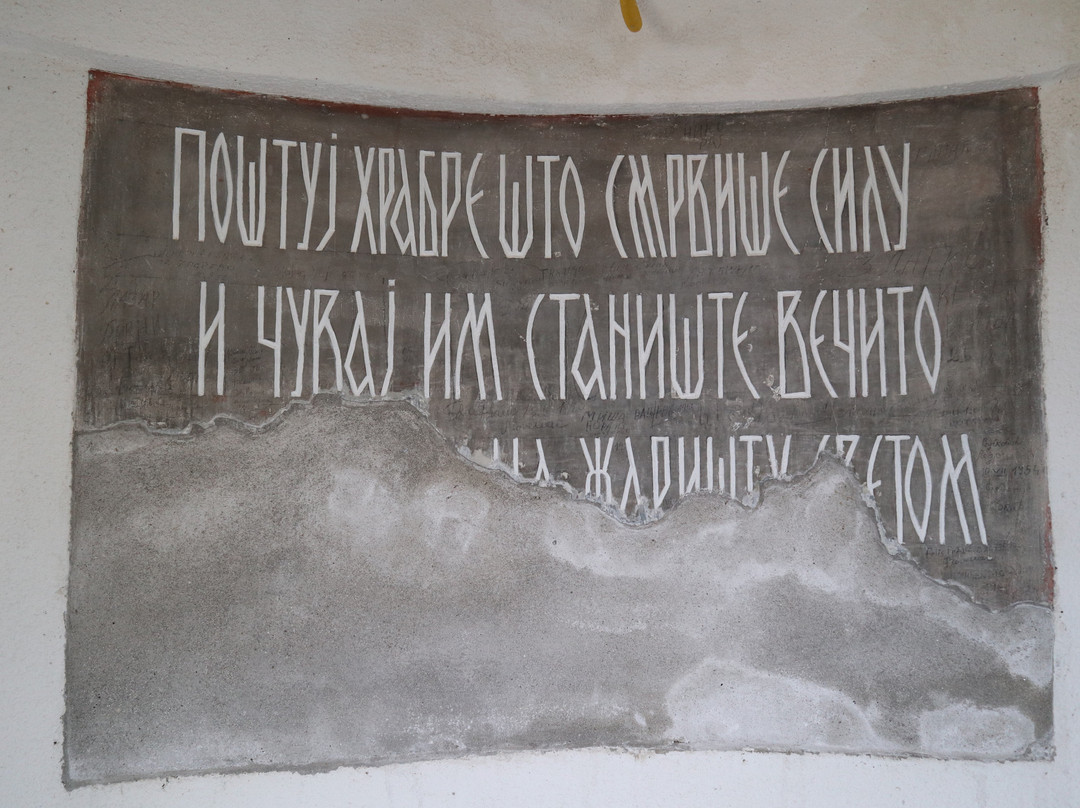 ПОШТУЈ ХРАБРЕ ШТО СМРВИШЕ СИЛУ
И ЧУВАЈ ИМ СТАНИШТЕ ВЕЧИТО
НА ЖАРИШТУ СВЕТОМ